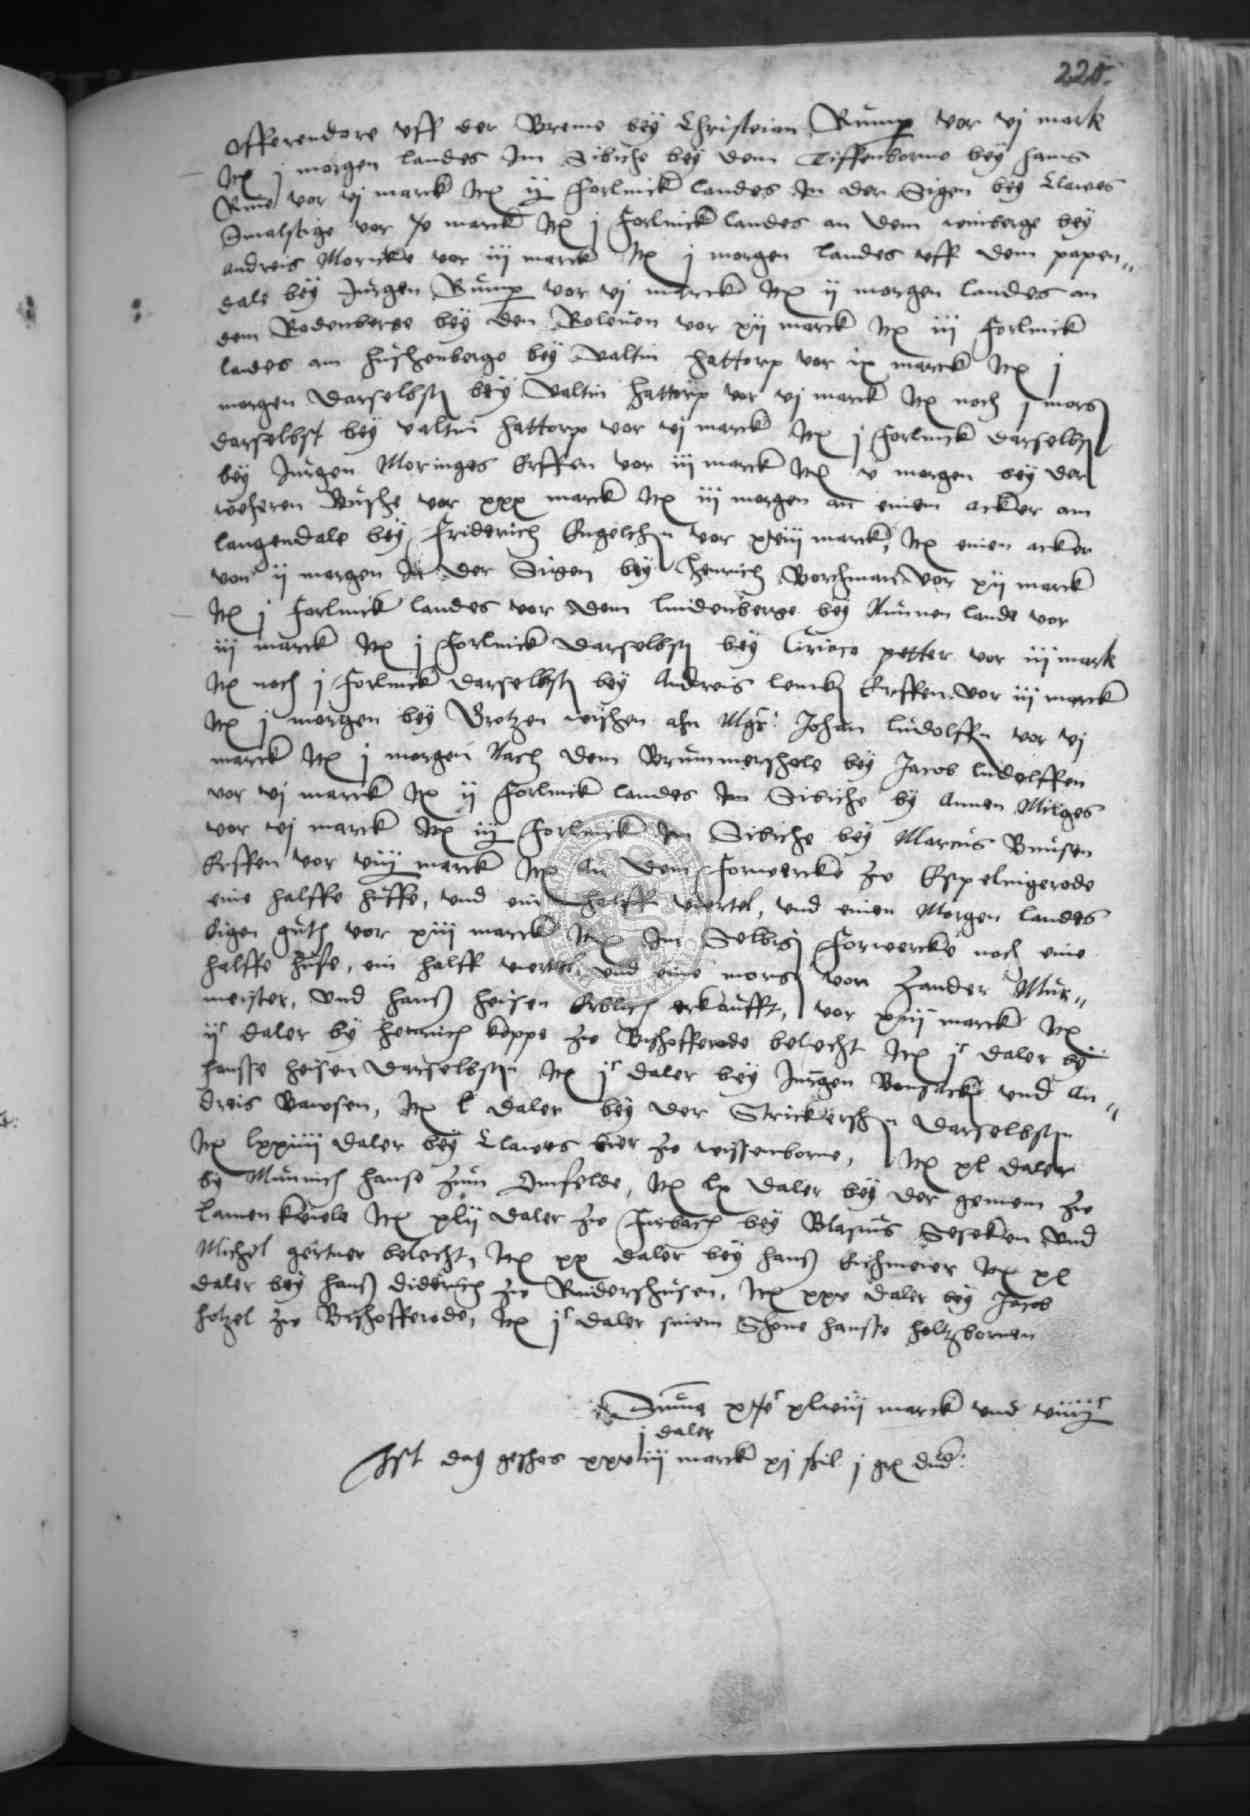 225.
Offerendore vff der Breme bey Christoian Rump vor vj mark
Itx j morgen landes Im Sibiche bey dem Tiffenborne bey hans
Rume vor vj marck Itx ij forlinck landes In der Sigen bey Clawes
Smalstige vor marck Itx j forlinck landes an dem winberge bey
andreis Moricke vor iij marck Itx j morgen landes vff dem papen„
dale bey Jurgen Rump vor vj marck Itx ij morgen landes an
dem Rodenberge bey den Roleuen vor xij marck Itx iij forlinck
landes am huszenberge bey valtin hattorp vor ix marck Itx j
morgen darselbst bey valtin hattorp vor vj marck Itx noch j morg
darselbst bey valtin hattorp vor vj marck Itx j forlinck darselbst
bey Jurgen Moringes Erffen vor iij marck Itx v morgen bey der
Busche vor xxx marck Itx iij morgen an einem acker am
langendale bey friderich Engelchen vor xviij marck, Itx einen acker
von ij morgen In der Sigen bey Henrich Borchman vor xij marck
Itx j forlinck landes vor dem lindenberge bey Nunnen lande vor
iij marck Itx j forlinck darselbst bey Ciriaco petter vor iij mark
Itx noch j forlinck darselbst bey Andreis lenck Erffen vor iij marck
Itx j morgen bey wischen ahn Mgr: Johan ludolffn vor vj
marck Itx j morgen Nach dem Brummershole bey Jacob ludolffen
vor vj marck Itx ij forlinck landes Im Sibiche by Annen Milges
vor vj marck Itx iij forlinck Im Sibiche bey Marcus
Erffen vor marck Itx An dem forwercke zo Espelingerode
eine halffe huffe, vnd ein halff viertel, vnd einen Morgen landes
eigen guth vor xiij marck Itx Im Selbig forwercke noch eine
halffe hufe, ein halff viertel, vnd eine morg von Zander Mur„
meister, vnd hanß heisen Erblich erkaufft, vor xiij marck Itx
ijc daler by henrich koppe zo Bischofferode belecht Itx jc daler by
hansse heisen darselbst Itx jc daler bey Jurgen Bensack vnd An„
dreis Bawsen, Itx l daler bey der Strickerschn darselbst
Itx lxxiiij daler bey Clawes bier zo wissenborne, Itx xl daler
by Munnich hanse zum Imfelde, Itx lx daler bey der gemein zo
lamenkwiele Itx xlij daler zo furbach bey Blasius Seseken vnd
Michel gertner belecht, Itx xx daler bey hanß Eichmeier Itx xl
daler bey hanß diderich zo Rudershusen, Itx xxv daler bey Jacob
hotzel zo Bischofferode, Itx jc daler sinem Shone hansse holtzbornen
Suma xlviij marck vnd
j daler
Ist das geschos marck xj sol j gr